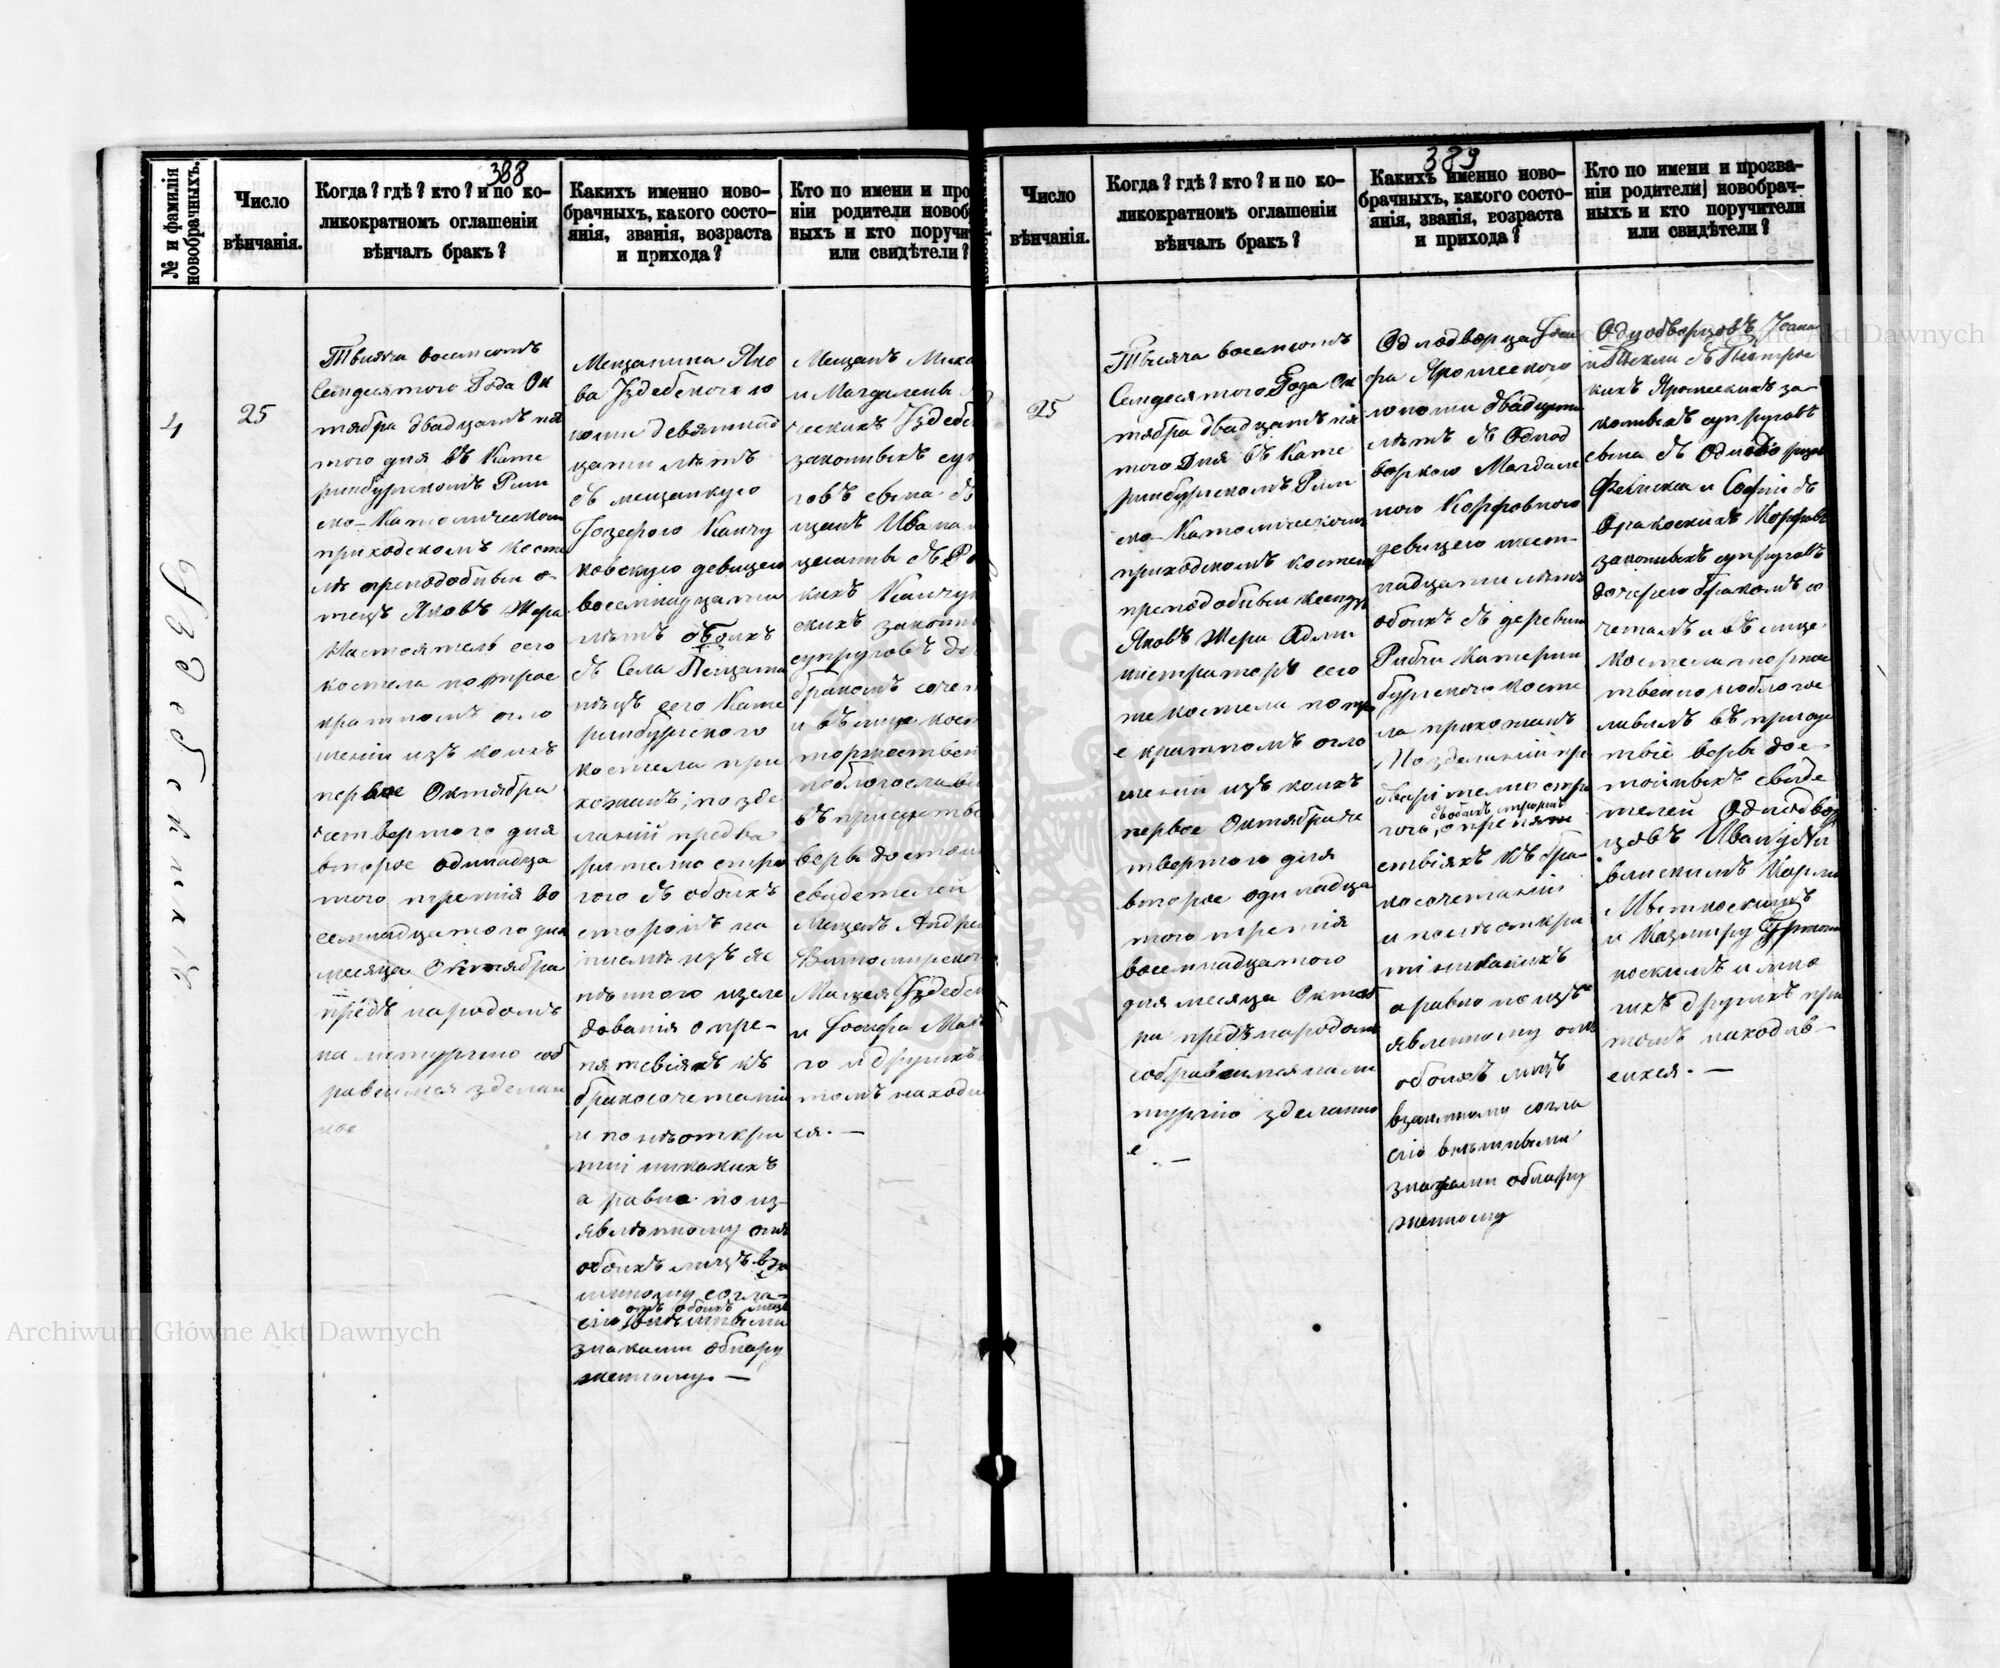 388
№ и фамилія
новобрачныхъ.
Число
вѣнчанія.
Когда? гдѣ? кто? и по ко-
ликократномъ оглашеніи
вѣнчалъ бракъ?
Какихъ именно ново-
брачныхъ, какого состо-
янія, званія, возраста
и прихода?
Кто по имени и про
ніи родители новоб
ныхъ и кто поручи
или свидѣтели?
4
25
Тысяча восемсотъ
Семдесятого Года Ок
тября двадцать пя
того дня въ Кате
ринбургскомъ Рим
ско-Католическом
приходскомъ косте
лѣ преподобный о-
тецъ Яковъ Жера
Настоятель сего
костела по трое
кратномъ огло
шеніи изъ коихъ
первое Октября
четвертого дня
второе одинадца
того третія во
семнадцатого дня
месяца Октября
предъ народомъ
на литургію соб
равшимся зделан
ное
Мещанина Яко
ва Уздебского ю
ноши девятнад
цати лѣтъ
съ мещанкую
Іозефою
девицею
восемнадцати
лѣтъ обоихъ
съ Села
сего Кате
ринбургского
костела при
хожанъ; по зде
ланій предва
рително стро
гого съ обоихъ
сторонъ на
писмѣ изъ
изсле
дованія о пре-
пятсвіяхъ къ
бракосочетанію
и по неоткри
тій никакихъ
а равно по из-
явленному
обоихъ лицъ вза
имному согла-
отъ обоихъ лицъ
сію
знаками обнару
женному. —
Мещанъ Миха
и Магдалены
Уздебс
законныхъ суп
говъ сына съ
щанъ Ивана
съ
кихъ
скихъ законн
супруговъ до
бракомъ сочет
и въ лице кост
торжествен
поблогослави
въ присутстві
верві достой
свидетелей
Мещанъ Андрея
Мацея Уздебс
и Іосифа
го и другихъ
томъ находи
ся. —
389
Число
вѣнчанія.
Когда? гдѣ? кто? и по ко-
ликократномъ оглашеніи
вѣнчалъ бракъ?
Какихъ именно ново-
брачныхъ, какого состо-
янія, званія, возраста
и прихода?
Кто по имени и прозва-
ніи родители новобрач-
ныхъ и кто поручители
или свидѣтели?
25
Тысяча восемсотъ
Семдесятого Года Ок
тября двадцать пя
того Дня въ Кате
ринбургскомъ Рим
ско-Католическомъ
приходскомъ костел
преподобный ксендзъ
Яковъ Жера Адми
нистраторъ сего
же костела по тро
е кратномъ огло
шеній изъ коихъ
первое Октября че
твертого дня
второе одинадца
того третія
восемнадцатого
дня месяца Октяб
ря предъ народомъ
собравшимся на ли
тургію зделанно
е. —
Однодворца Іоси
фа Ярошеского
юноши двадцати
лѣтъ съ Однод
воркою Магдале
ною Корфовною
девицею шест-
надцати лѣтъ
обоихъ съ деревни
Рибчи Катерин
бургского косте
ла прихожанъ
По зделаній пре
дварително стро
съ обоихъ сторонъ
гого, о препят
ствіяхъ къ бра
косочетанію
и по неоткри
тій никакихъ
а равно по изъ
явленному
обоихъ лицъ
взаимному согла
сію
знаками обнару
женному
Однодворцовъ Іоана
и Текли съ Піотров
кихъ Ярошескихъ за-
конныхъ супруговъ
сына съ Однодворцов
Феликса и Софіи съ
Корфовъ
законныхъ супруговъ
дочерею бракомъ со
четалъ и въ лице
Костела торже
твенно поблогос
ливилъ въ присутс
твіе верві дос-
тойныхъ свиде
телей Однодвор
цовъ Ивану
и Казимиру
и мно
гихъ другихъ при
томъ находив-
шихся. —
Уздебскихъ
Archiwum Główne Akt Dawnych
Archiwum Główne Akt Dawnych